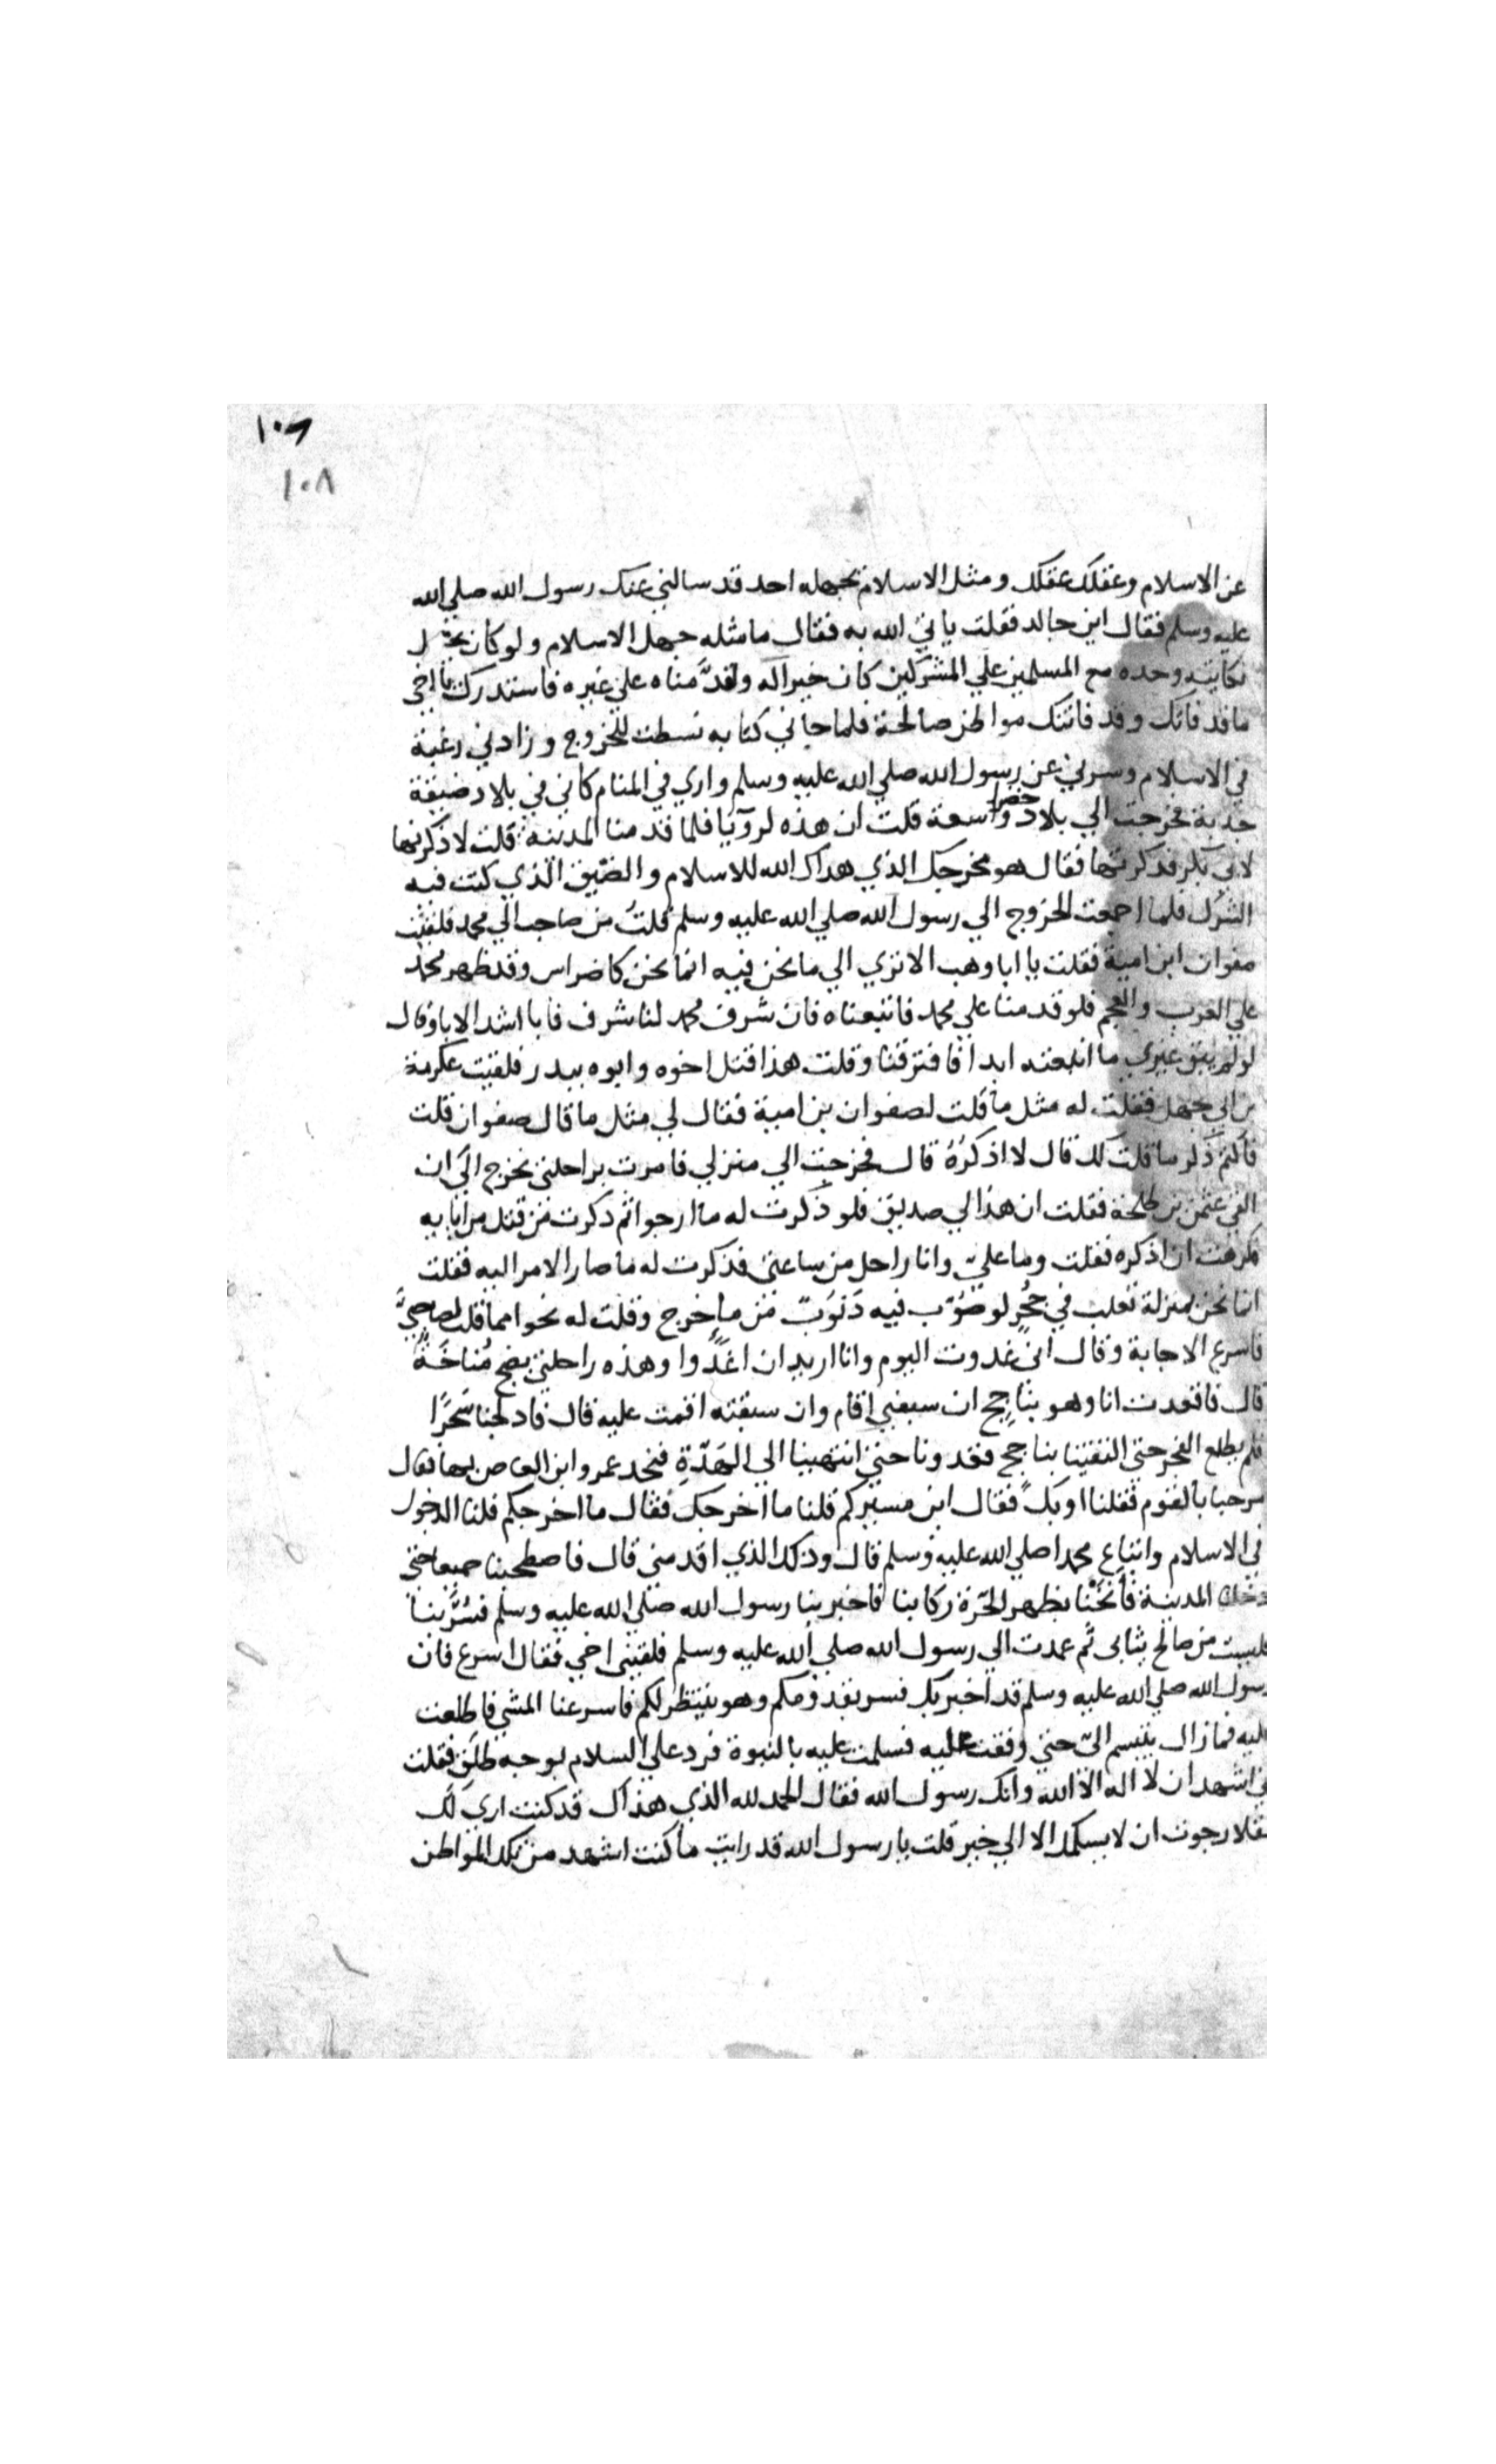 ١٠٦
١٠٨
عن الاسلام وعقلك عقلك ومثل الاسلام يجهله احد قد سالني عنك رسول الله صلي الله
عليه وسلم فقال اين خالد فقلت ياتي الله به فقال ما مثله جهل الاسلام ولو كان يجعل
نكايته وحده مع المسلمين علي المشركين كان خيرا له ولقدَّمناه علي غيره فاستدرك يا اخي
ما قد فاتك وقد فاتتك مواطن صالحة فلما جاني كتابه نسطت للخروج وزادني رغبة
في الاسلام وسرني عن رسول الله صلي الله عليه وسلم واري في المنام كاني في بلاد ضيقة
جدبة فخرجت الي بلاد خضرا واسعة قلت ان هذه لرويا فلما قدمنا المدينة قلت لاذكرنها
لابي بكر فذكرتها فقال هو مخرجك الذي هداك الله للاسلام والضيق الذي كنت فيه
الشرك فلما اجمعت الخروج الي رسول الله صلي الله عليه وسلم قلت من صاحب الي محمد فلقيت
صفوان ابن امية فقلت يا ابا وهب الا تري الي ما نحن فيه انما نحن كاضراس وقد ظهر محمد
علي العرب والعجم فلو قدمنا علي محمد فاتبعناه فان شرف محمد لنا شرف فابا اشد الابا وقال
لو لم يبق غيري ما اتبعته ابدا فافترقنا وقلت هذا قتل اخوه وابوه ببدر فلقيت عكرمة
بن ابي جهل فقلت له مثل ما قلت لصفوان بن امية فقال لي مثل ما قال صفوان قلت
فاكتم ذكر ما قلت لك قال لا اذكرُهُ قال فخرجت الي منزلي فامرت براحلتي تخرج الي ان
القي عثمن بن طلحة فقلت ان هذا لي صديق فلو ذكرت له ما ارجوا ثم ذكرت من قتل من ابايه
فكرهت ان اذكره فقلت وما عليّ وانا راحل من ساعتي فذكرت له ما صار الامر اليه فقلت
انما نحن بمنزلة ثعلب في جُحْرٍ لو صُوّب فيه ذَنوب من ما خرج وقلت له نحوا مما قلت لصاحبيَّ
فاسرع الاجابة وقال اني غدوت اليوم وانا اريد ان اغدوا وهذه راحلتي بفج مُناخَةٌ
قال فاتعدت انا وهو بياجج ان سبقني اقام وان سبقته اقمت عليه قال فادلجنا سَحَرًا
فلم يطلع الفجر حتي التقينا بياجج فغدونا حتي انتهينا الي الهَدَّةِ فنجد عمرو ابن العاص بها فقال
مرحبا بالقوم فقلنا اوبك فقال اين مسيركم قلنا ما اخرجك فقال ما اخرجكم قلنا الدخول
في الاسلام واتباع محمدا صلي الله عليه وسلم قال وذلك الذي اقدمني قال فاصطحبنا جميعا حتي
دخلنا المدينة فأنَخْنا بظهر الحرّة ركابنا فاخبر بنا رسول الله صلي الله عليه وسلم فسُرّ بنا
فلبست من صالح ثيابي ثم عمدت الي رسول الله صلي الله عليه وسلم فلقيني اخي فقال اسرع فان
رسول الله صلي الله عليه وسلم قد اخبر بك فسر بقدومكم وهو ينتظركم فاسرعنا المشي فاطلعت
عليه فما زال يتبسم اليّ حتي وقفت عليه فسلمت عليه بالنبوة فرد علي السلام بوجه طلق فقلت
اني اشهد ان لا اله الا الله وانك رسول الله فقال الحمد لله الذي هداك قد كنت اري لك
عقلا رجوت ان لا يسلمك الا الي خير قلت يا رسول الله قد رايت ما كنت اشهد من تلك المواطن